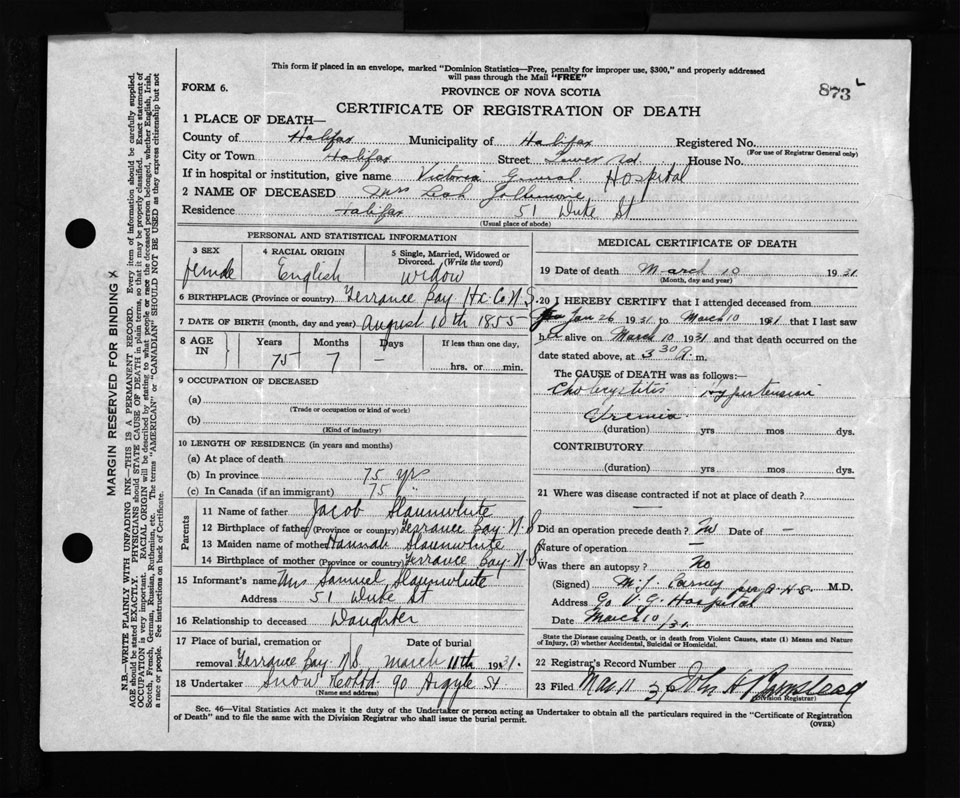 This form if placed in an envelope, marked "Dominion Statistics—Free, penalty for improper use, $300," and properly addressed
will pass through the Mail "FREE"
FORM 6.
PROVINCE OF NOVA SCOTIA
873
CERTIFICATE OF REGISTRATION OF DEATH
1 PLACE OF DEATH—
County of Halifax Municipality of Halifax Registered No.
(For use of Registrar General only)
City or Town Halifax Street Tower Rd House No.
If in hospital or institution, give name Victoria General Hospital
2 NAME OF DECEASED Mrs Leah Jollimore
Residence Halifax 51 Duke St
(Usual place of abode)
PERSONAL AND STATISTICAL INFORMATION
3 SEX 4 RACIAL ORIGIN 5 Single, Married, Widowed or Divorced. (Write the word)
female English widow
6 BIRTHPLACE (Province or country) Terrance Bay Hx. Co N.S.
7 DATE OF BIRTH (month, day and year) August 10th 1855
8 AGE IN Years Months Days If less than one day,
75 7 – hrs. or min.
9 OCCUPATION OF DECEASED
(a)
(Trade or occupation or kind of work)
(b)
(Kind of industry)
10 LENGTH OF RESIDENCE (in years and months)
(a) At place of death
(b) In province 75 yrs
(c) In Canada (if an immigrant) 75 "
Parents
11 Name of father Jacob Slaunwhite
12 Birthplace of father (Province or country) Terrance Bay. N.S
13 Maiden name of mother Hannah Slaunwhite
14 Birthplace of mother (Province or country) Terrance Bay. N.S.
15 Informant's name Mrs Samuel Slaunwhite
Address 51 Duke St
16 Relationship to deceased Daughter
17 Place of burial, cremation or Date of burial
removal Terrance Bay. N.S. March 11th 1931.
18 Undertaker Snow & Co Ltd 90 Argyle St
(Name and address)
MEDICAL CERTIFICATE OF DEATH
19 Date of death March 10 1931
(Month, day and year)
20 I HEREBY CERTIFY that I attended deceased from
Jan 26 1931 to March 10 1931 that I last saw
her alive on March 10 1931 and that death occurred on the
date stated above, at 3 30 A. m.
The CAUSE of DEATH was as follows:—
Cholecystitis Hypertension
Uremia
(duration) yrs mos dys.
CONTRIBUTORY
(duration) yrs. mos dys.
21 Where was disease contracted if not at place of death?
—
Did an operation precede death? No Date of –
Nature of operation –
Was there an autopsy? No
(Signed) M.J. Carney per A.H.S. M.D.
Address c/o V.G. Hospital
Date March 10/31.
State the Disease causing Death, or in death from Violent Causes, state (1) Means and Nature
of Injury, (2) whether Accidental, Suicidal or Homicidal.
22 Registrar's Record Number
23 Filed Mar 11 31 John H
(Division Registrar)
Sec. 46—Vital Statistics Act makes it the duty of the Undertaker or person acting as Undertaker to obtain all the particulars required in the "Certificate of Registration
of Death" and to file the same with the Division Registrar who shall issue the burial permit.
(OVER)
MARGIN RESERVED FOR BINDING X
N.B.—WRITE PLAINLY WITH UNFADING INK—THIS IS A PERMANENT RECORD. Every item of information should be carefully supplied.
AGE should be stated EXACTLY. PHYSICIANS should STATE CAUSE OF DEATH in plain terms, so that it may be properly classified. Exact statement of
OCCUPATION is very important. RACIAL ORIGIN will be described by stating to what people or race the deceased person belonged, whether English, Irish,
Scotch, French, German, Russian, Ruthenian, etc. The terms "AMERICAN" or "CANADIAN" SHOULD NOT BE USED as they express citizenship but not
a race or people. See instructions on back of Certificate.